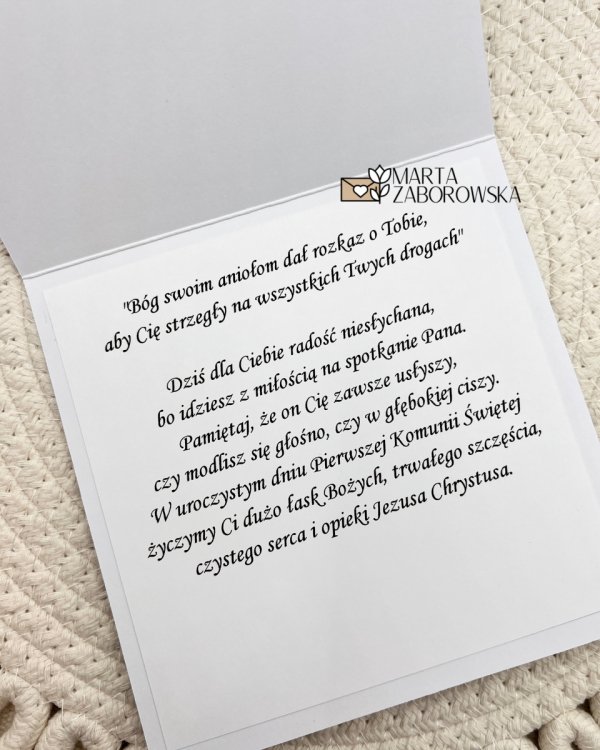 MARTA
ZABOROWSKA
"Bóg swoim aniołom dał rozkaz o Tobie,
aby Cię strzegły na wszystkich Twych drogach"
Dziś dla Ciebie radość niesłychana,
bo idziesz z miłością na spotkanie Pana.
Pamiętaj, że on Cię zawsze usłyszy,
czy modlisz się głośno, czy w głębokiej ciszy.
W uroczystym dniu Pierwszej Komunii Świętej
życzymy Ci dużo łask Bożych, trwałego szczęścia,
czystego serca i opieki Jezusa Chrystusa.